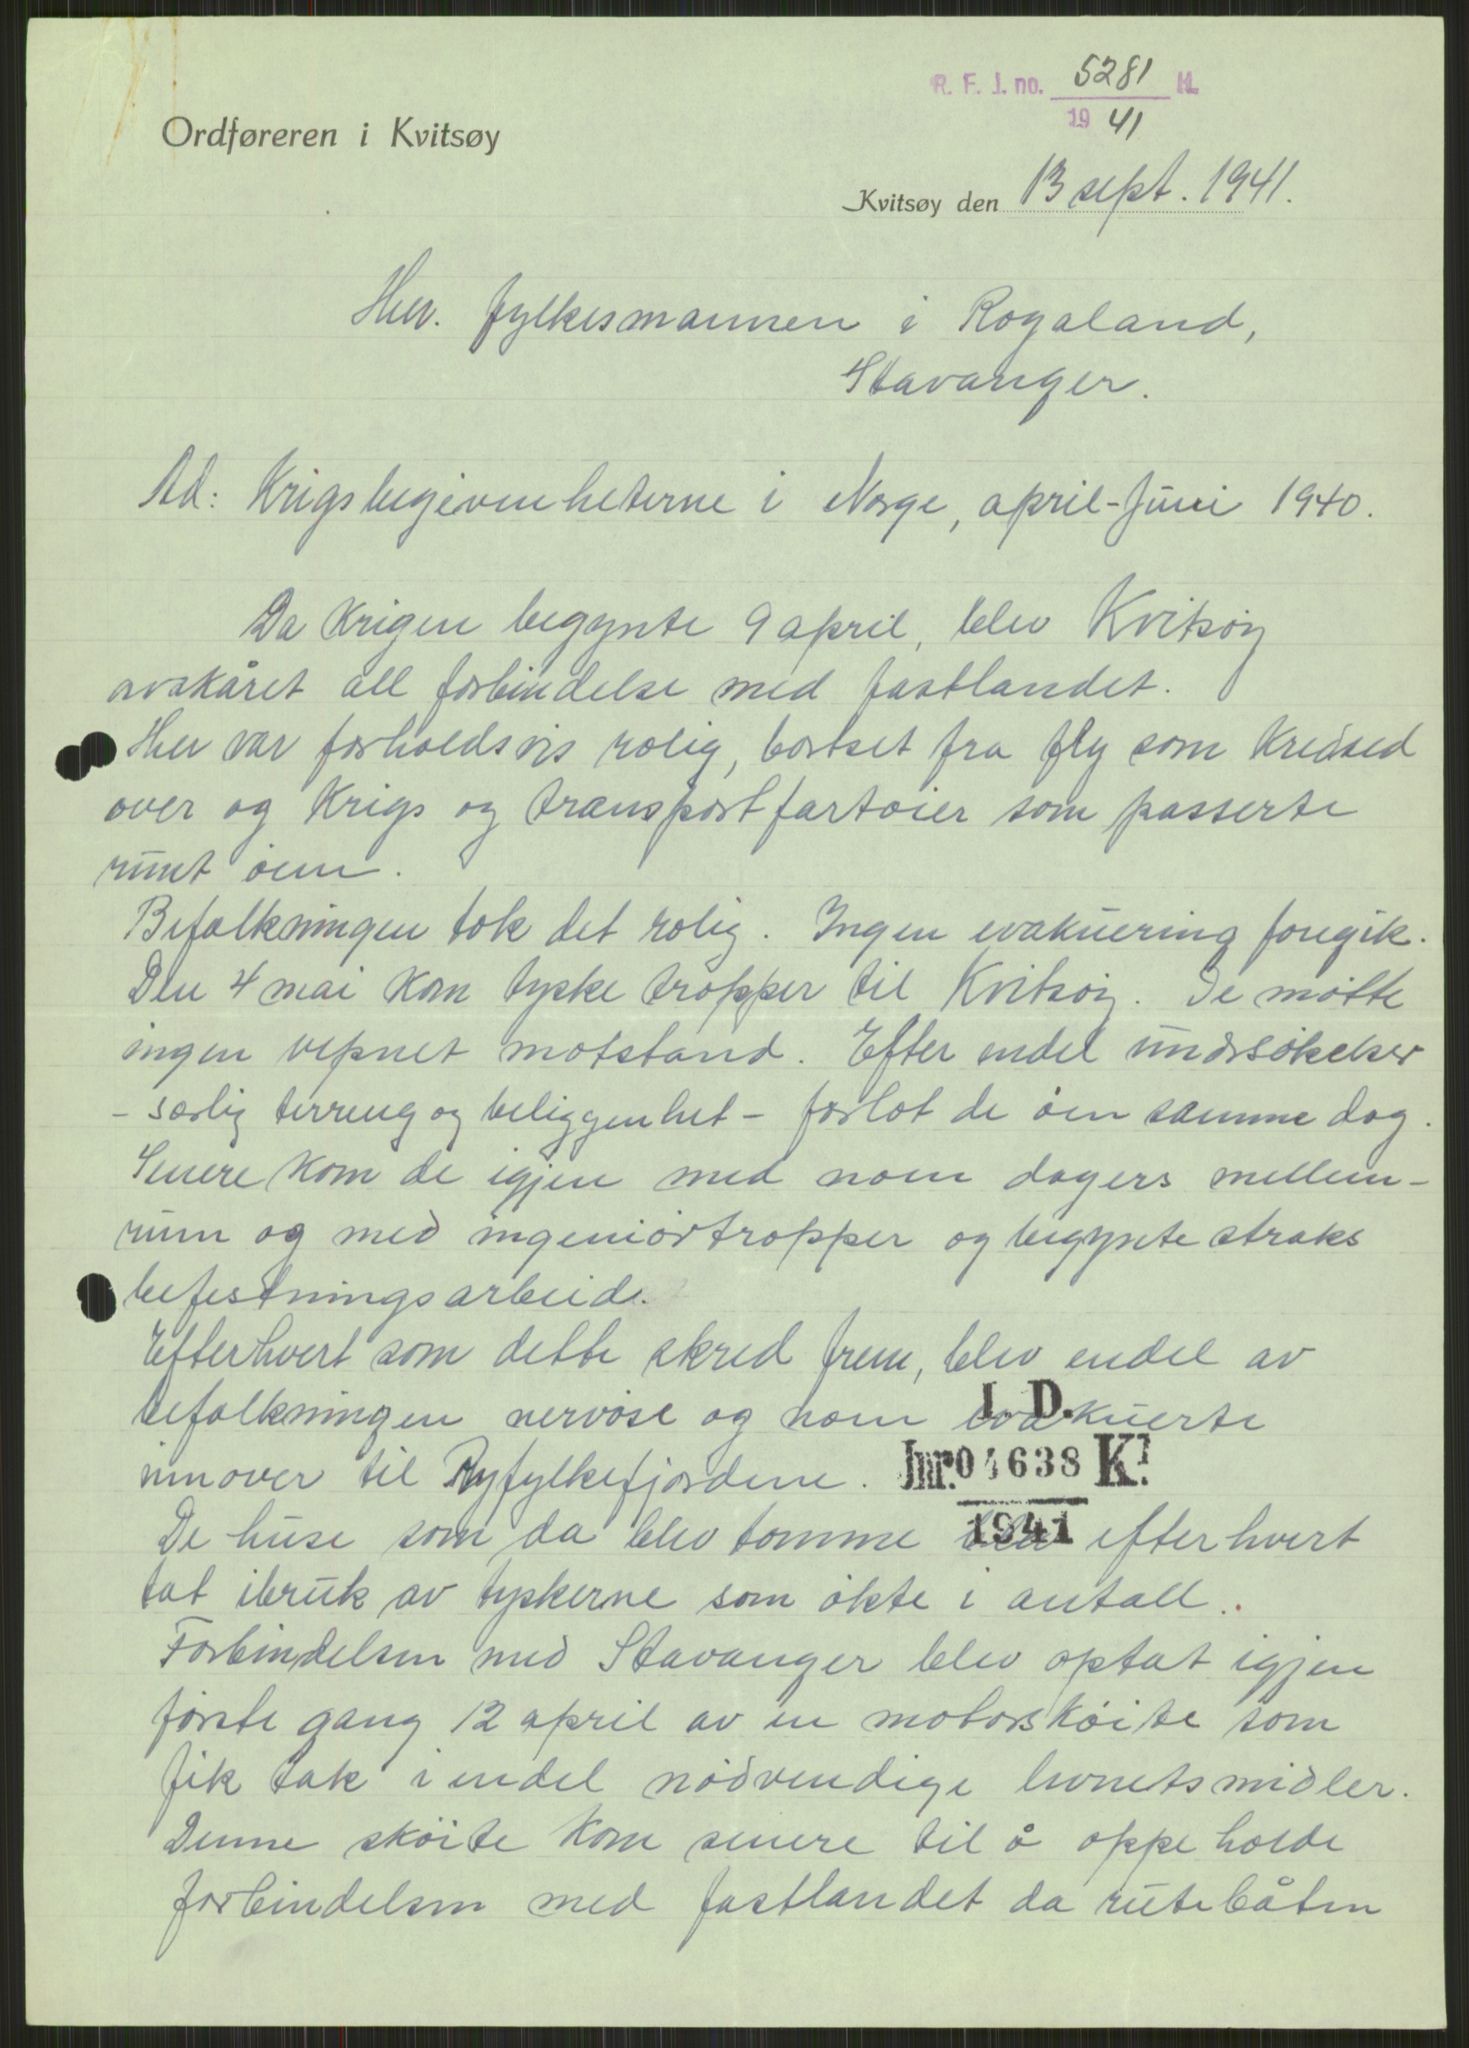 R. F. J. no. 5281 H.
19 41
Ordføreren i Kvitsøy
Kvitsøy den 13 sept. 1941.
Herr. fylkesmannen i Rogaland,
Stavanger.
Ad: Krigsbegivenheterne i Norge, april-Juni 1940.
Da Krigen begynte 9 april, blev Kvitsöy
avskåret all forbindelse med fastlandet.
Her var forholdsvis rolig, bortset fra fly som Kredsed
over og Krigs og transportfartöier som passerte
runt öen.
Befolkningen tok det rolig. Ingen evakuering foregik.
Den 4 mai Kom tyske tropper til Kvitsöy. De mötte
ingen vepnet motstand. Efter endel undersökelser
- særlig terreng og beliggenhet - forlot de öen samme dag.
Senere Kom de igjen med noen dagers mellem-
rum og med ingeniörtropper og begynte straks
befestningsarbeide.
Efterhvert som dette skred frem, blev endel av
befolkningen nervöse og noen evakuerte
innover til Ryfylkefjordene.
I. D.
Jnr. 04638 K!
1941
De huse som da blev tomme blev efterhvert
tat ibruk av tyskerne som ökte i antall.
Forbindelsen med Stavanger blev optat igjen
förste gang 12 april av en motorsköite som
fik tak i endel nödvendige levnetsmidler.
Denne sköite Kom senere til å oppeholde
forbindelsen med fastlandet da rutebåten